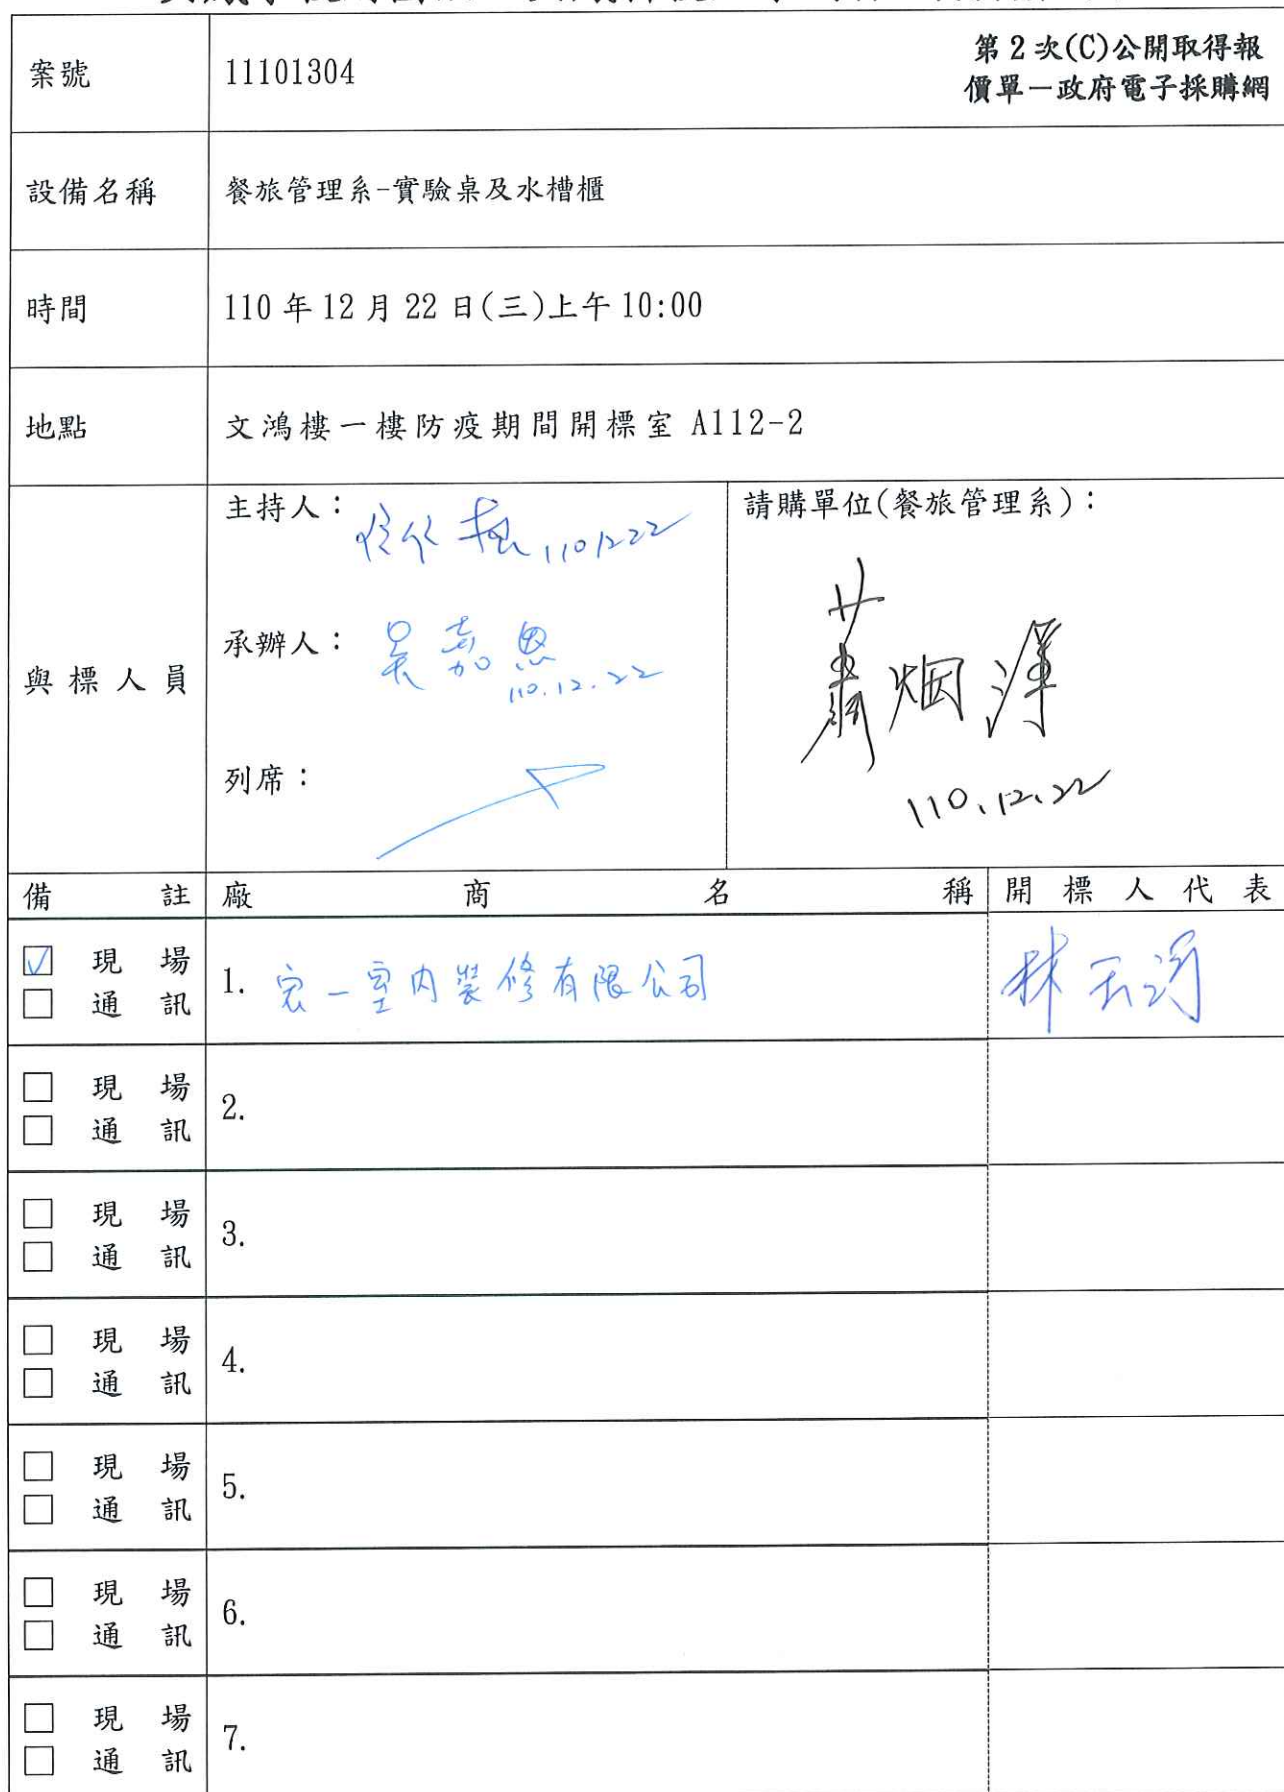 案號 11101304 第2次(C)公開取得報
價單—政府電子採購網
設備名稱 餐旅管理系-實驗桌及水槽櫃
時間 110年12月22日(三)上午10:00
地點 文鴻樓一樓防疫期間開標室 A112-2
與標人員
主持人：
1101222
承辦人：吳嘉恩
110.12.22
列席：
請購單位(餐旅管理系)：
蕭烟淳
110.12.22
備註 廠商名稱 開標人代表
☑ 現場
□ 通訊
1. 宏一室內裝修有限公司
林
□ 現場
□ 通訊
2.
□ 現場
□ 通訊
3.
□ 現場
□ 通訊
4.
□ 現場
□ 通訊
5.
□ 現場
□ 通訊
6.
□ 現場
□ 通訊
7.